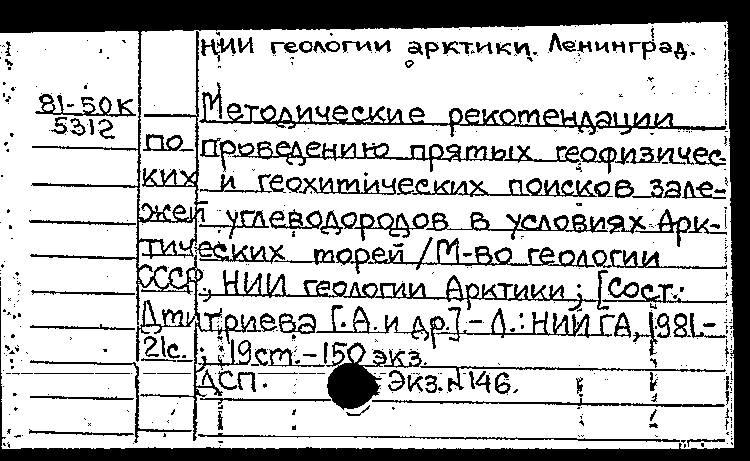 НИИ геологии арктики. Ленинград.
81-50К
5312
Методические рекомендации
по проведению прямых геофизичес-
ких и геохимических поисков зале-
жей углеводородов в условиях Арк-
тических морей / М-во геологии
СССР, НИИ геологии Арктики; [Сост.:
Дмитриева Г. А. и др.]. - Л.: НИИГА, 1981.-
21с. ; 19см. - 150 экз.
ДСП. Экз. N 146.